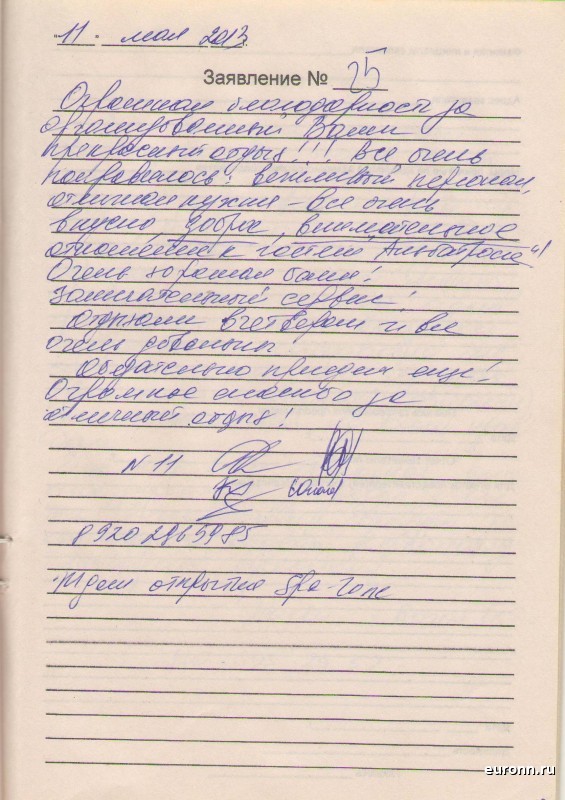 11. мая 2013
Заявление № 25
Огромная благодарность за
организованный Вами
прекрасный отдых!!! Все очень
понравилось: вежливый персонал,
отличная кухня – все очень
вкусно, доброе, внимательное
отношение к гостям "Альбатроса"!
Очень хорошая баня!
Замечательный сервис!
Отдыхали вчетвером и все
очень довольны!
Обязательно приедем еще!
Огромное спасибо за
отличный отдых!
N 11
8920 2965985
Ждем открытия Spa-зоне
euronn.ru